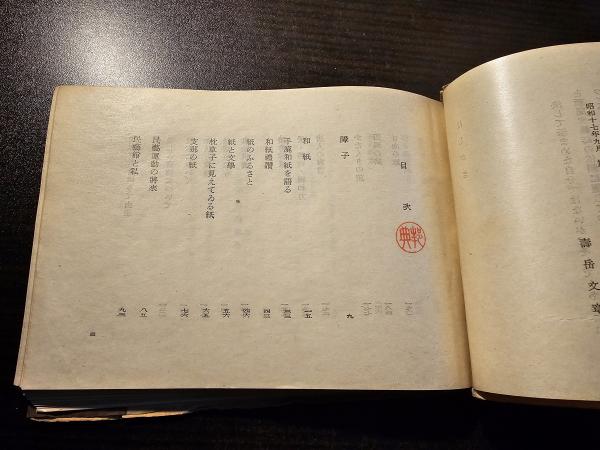 昭和十七年九月
壽岳文章
目次
障子 九
和紙 一五
手漉和紙を語る 三三
和紙禮讃 四三
紙のふるさと 四六
紙と文學 五六
枕草子に見えてゐる紙 六五
支那の紙 七六
民藝運動の將來 八五
民藝館と私 九三